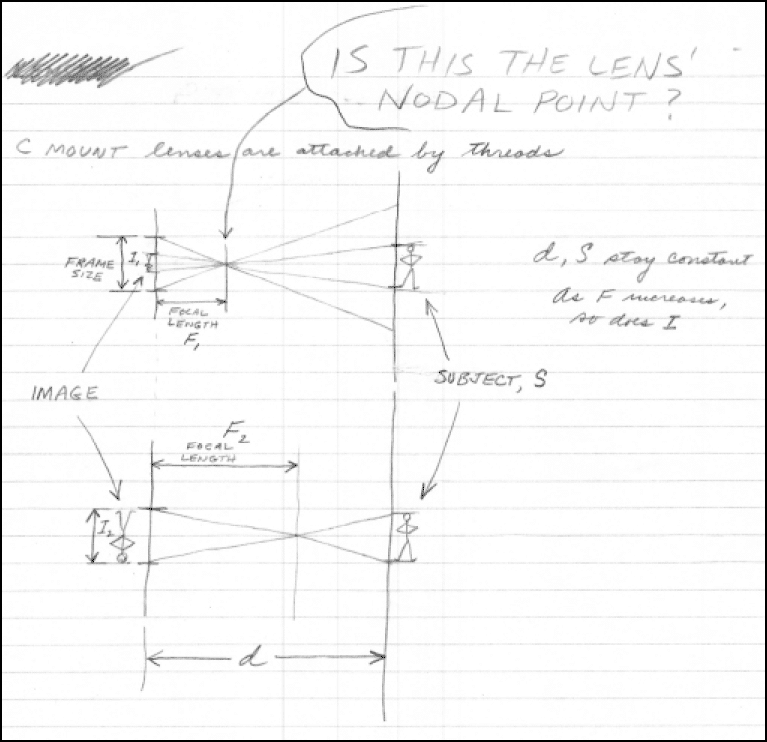 IS THIS THE LENS'
NODAL POINT?
C MOUNT lenses are attached by threads
FRAME
SIZE
I₁
FOCAL
LENGTH
F₁
d, S stay constant
As F increases,
so does I
IMAGE
SUBJECT, S
F₂
FOCAL
LENGTH
I₂
d